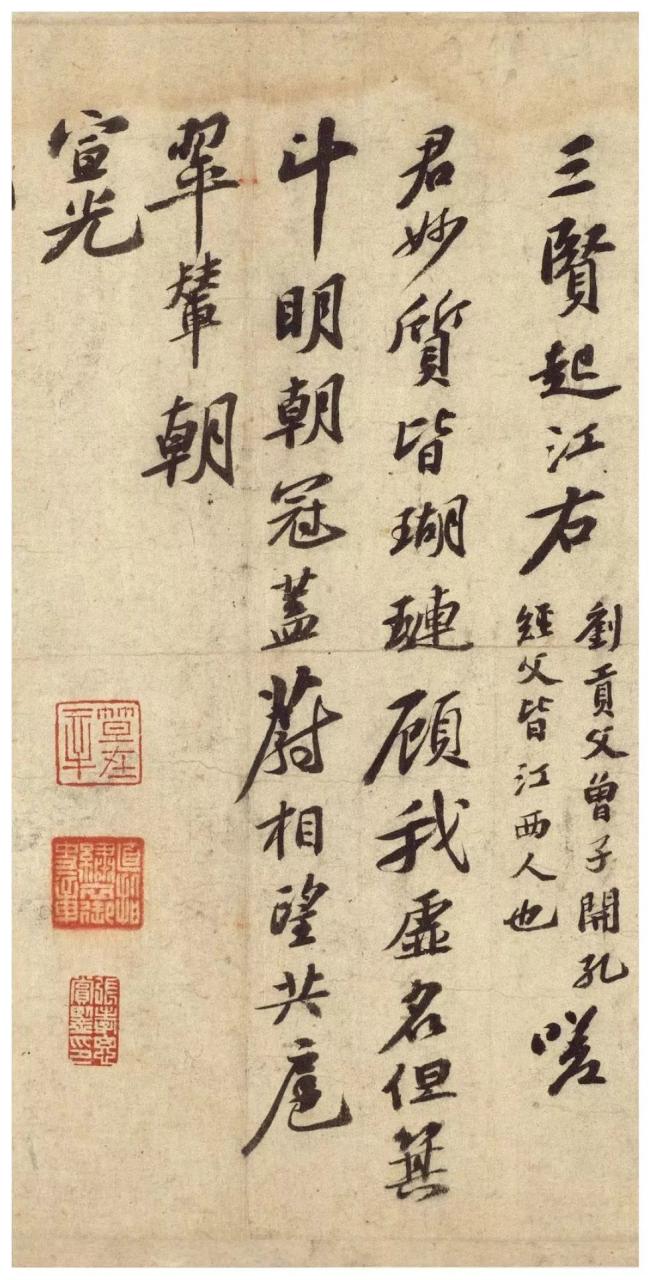 三賢起江右
劉貢父曾子開孔
經父皆江西人也
嗟
君妙質皆瑚璉顧我虛名但箕
斗明朝冠蓋蔚相望共扈
翠輦朝
宣光
張孝思賞鑒印